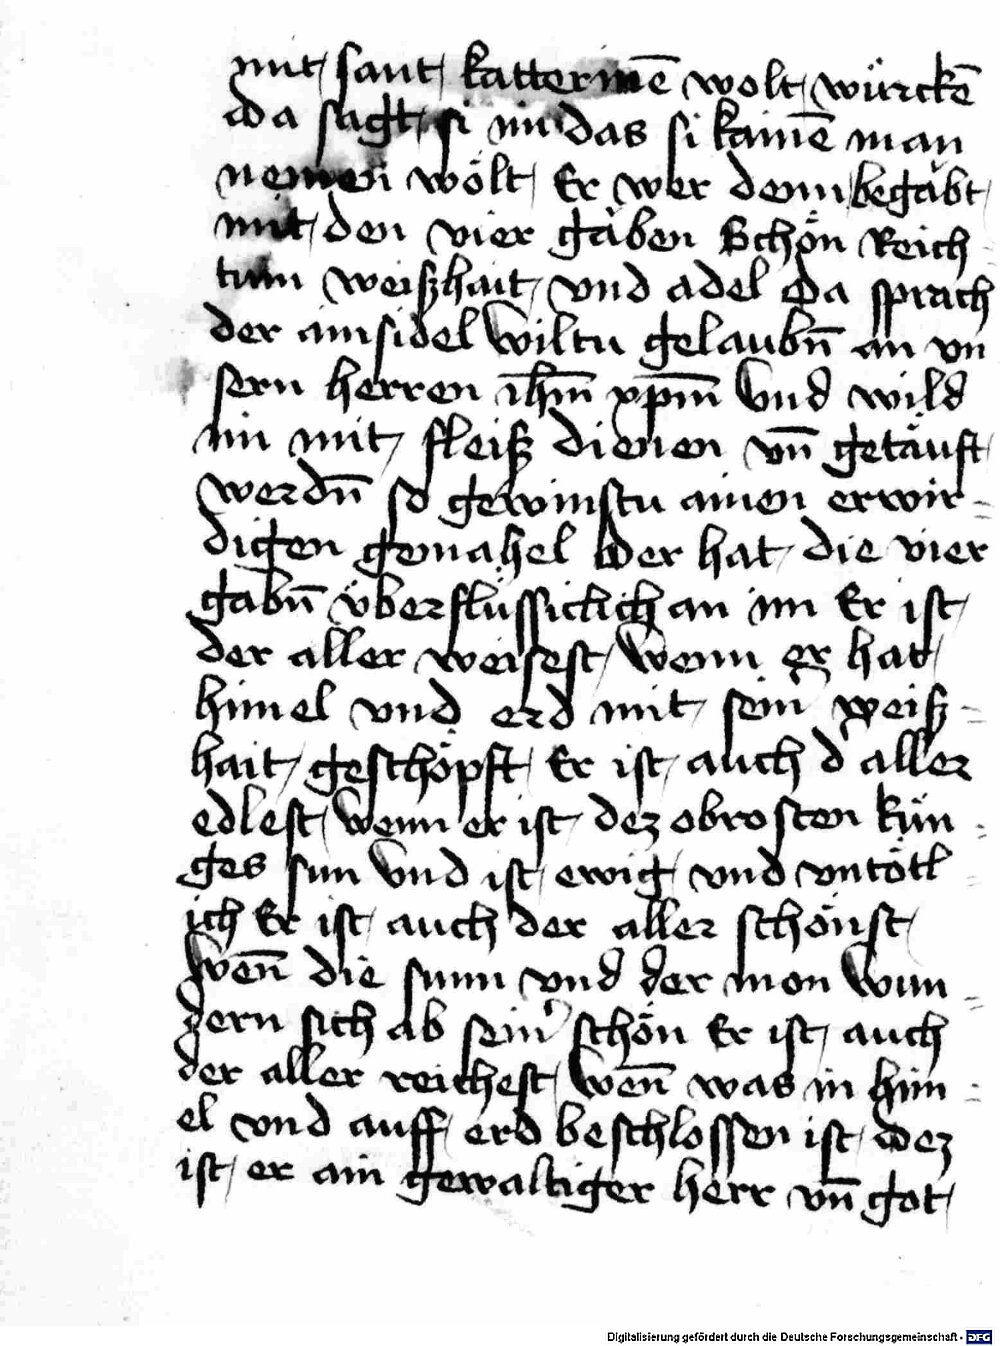 mit sant kattermē wolt würckē
da sagt si im das si kainē man
nemen wölt Er wer denn begābt
mit den vier gāben Schön Reich
tum weißhait vnd adel Da sprach
der ainsidel Wiltu gelaubn̄ an vn
sern herren ih̄m xp̄m Vnd wild
im mit fleiß dienen vn̄ getäuft
werdn̄ so gewinstu ainen erwir=
digen gemahel Der hat die vier
gabn̄ überflüssicklich an im Er ist
der aller weisest Wenn er hat
himel vnd erd mit sein̄ weiß=
hait geschöpft Er ist auch d' aller
edlest Wenn er ist dez obrosten kün=
ges sun Vnd ist ewig vnd vntötl=
ich Er ist auch der aller schönst
Wen̄ die sunn vnd der mon Wun=
dern sich ab sein' schön Er ist auch
der aller reichest Wen̄ was in him=
el vnd auff erd beschlossen ist Dez
ist er ain gewaltiger herr vn̄ got
Digitalisierung gefördert durch die Deutsche Forschungsgemeinschaft - DFG